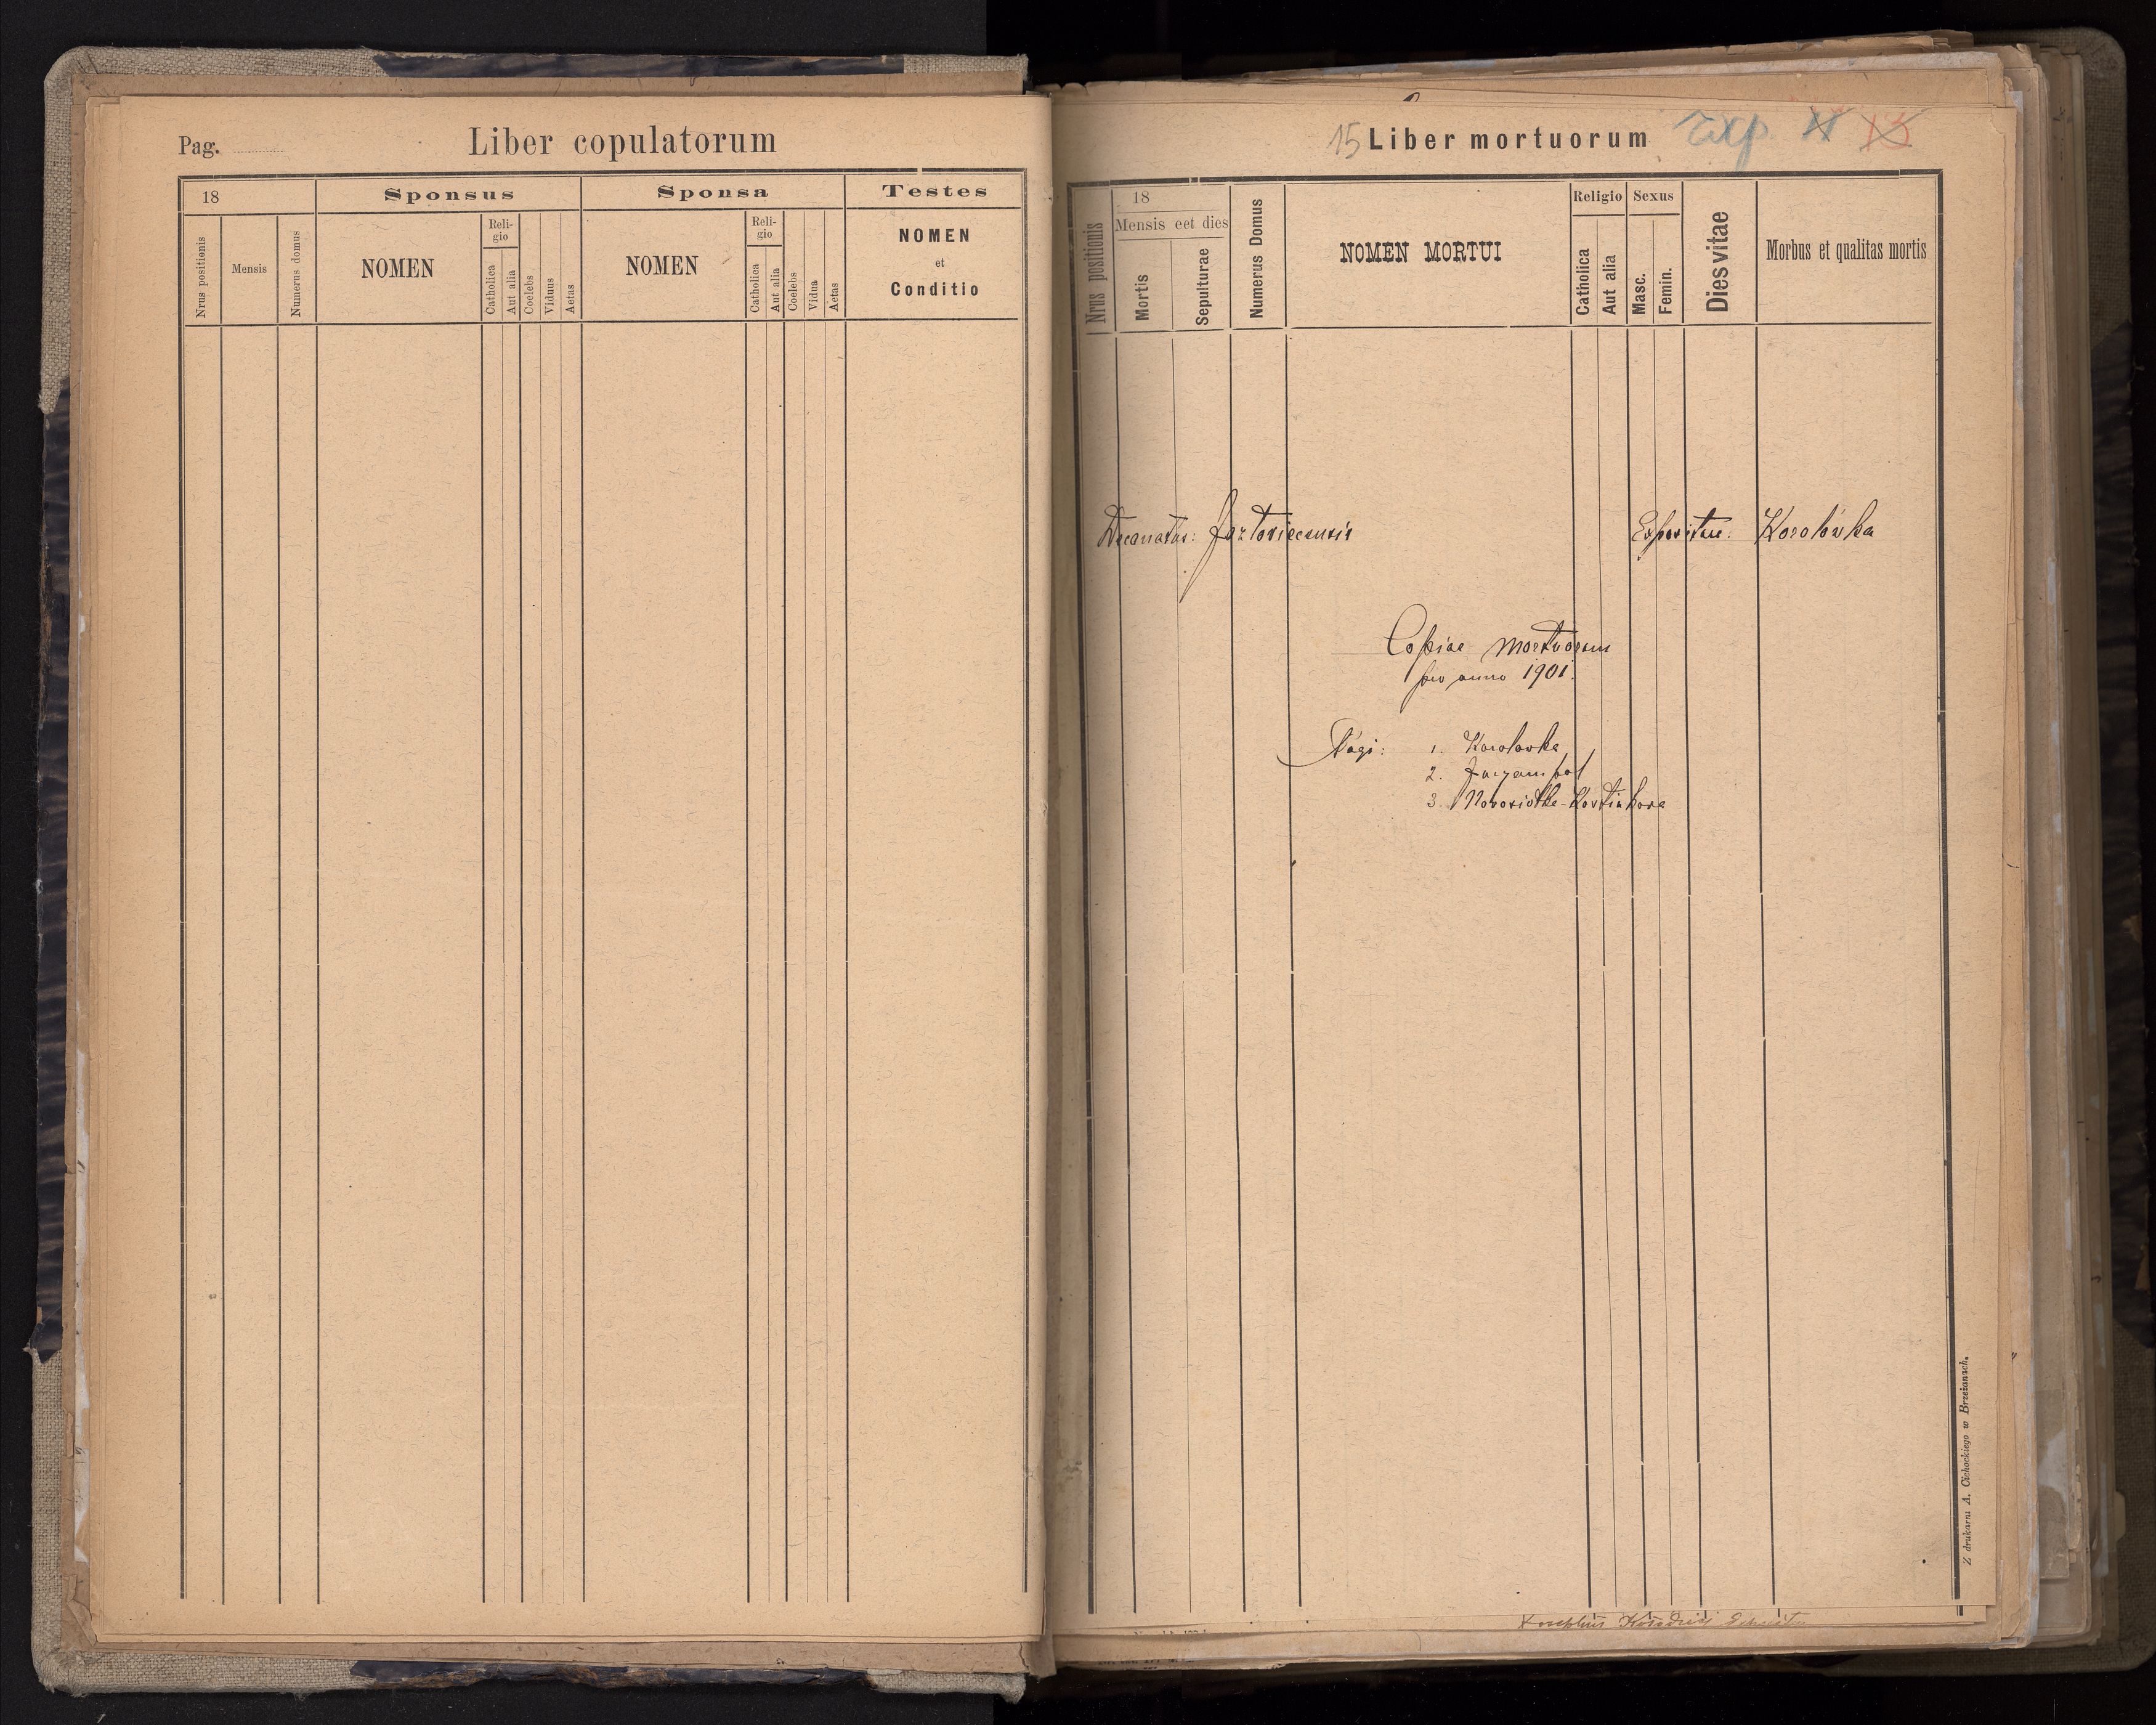 Pag.
Liber copulatorum
18
Sponsus
Sponsa
Testes
Nrus positionis
Mensis
Numerus domus
NOMEN
Reli-
gio
Catholica
Aut alia
Coelebs
Viduus
Aetas
NOMEN
Reli-
gio
Catholica
Aut alia
Coelebs
Vidua
Aetas
NOMEN
et
Conditio
15 Liber mortuorum Exp. 11 13
Nrus positionis
18
Mensis eet dies
Mortis
Sepulturae
Numerus Domus
NOMEN MORTUI
Religio
Catholica
Aut alia
Sexus
Masc.
Femin.
Dies vitae
Morbus et qualitas mortis
Decanatus: Jazłoviecensis Expositure: Korolówka
Copiae mortuorum
pro anno 1901.
Pagi: 1. Korolovka
2. Juryampol
3. Novosiołka-Kostiukova
Z drukarni A. Cichockiego w Brzeżanach.
Josephus